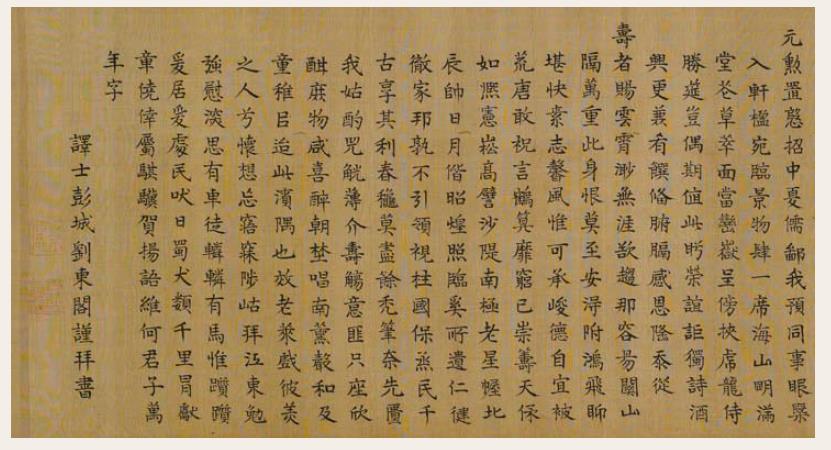 元勲置憩招中夏儒鄙我預同事眼㬎
入軒楹宛臨景物肆一席海山明滿
堂谷草萃面當巒嶽呈傍挾席龍侍
勝筵豈偶期值此盻榮誼詎獨詩酒
興更兼肴饌偹腑膈感恩隆忝從
壽者賜雲霄渺無涯欲趨那容易關山
隔萬重此身恨莫至安淂附鴻飛聊
堪快素志馨風惟可承峻德自宜被
荒唐敢祝言鶴筭靡窮已崇籌天保
如淵憲崧高譬沙隄南極老星幄北
辰帥日月偕昭煌照臨奚所遺仁徤
徹家邦孰不引領視柱國保烝民千
古享其利春穐莫盡餘禿筆奈先匱
我姑酌兕觥薄介壽觴意匪只座欣
酣庶物咸喜醉朝埜唱南薰嚴和及
童稚吕迨此濱隅也放老萊戲彼羙
之人兮懷想忘寤寐陟岵拜江東勉
強慰淡思有車徒轔轔有馬惟躓躓
爰居爰處民吠日蜀犬類千里冒獻
章僥倖屬騏驥賀揚語維何君子萬
年字
譯士彭城劉東閣謹拜書